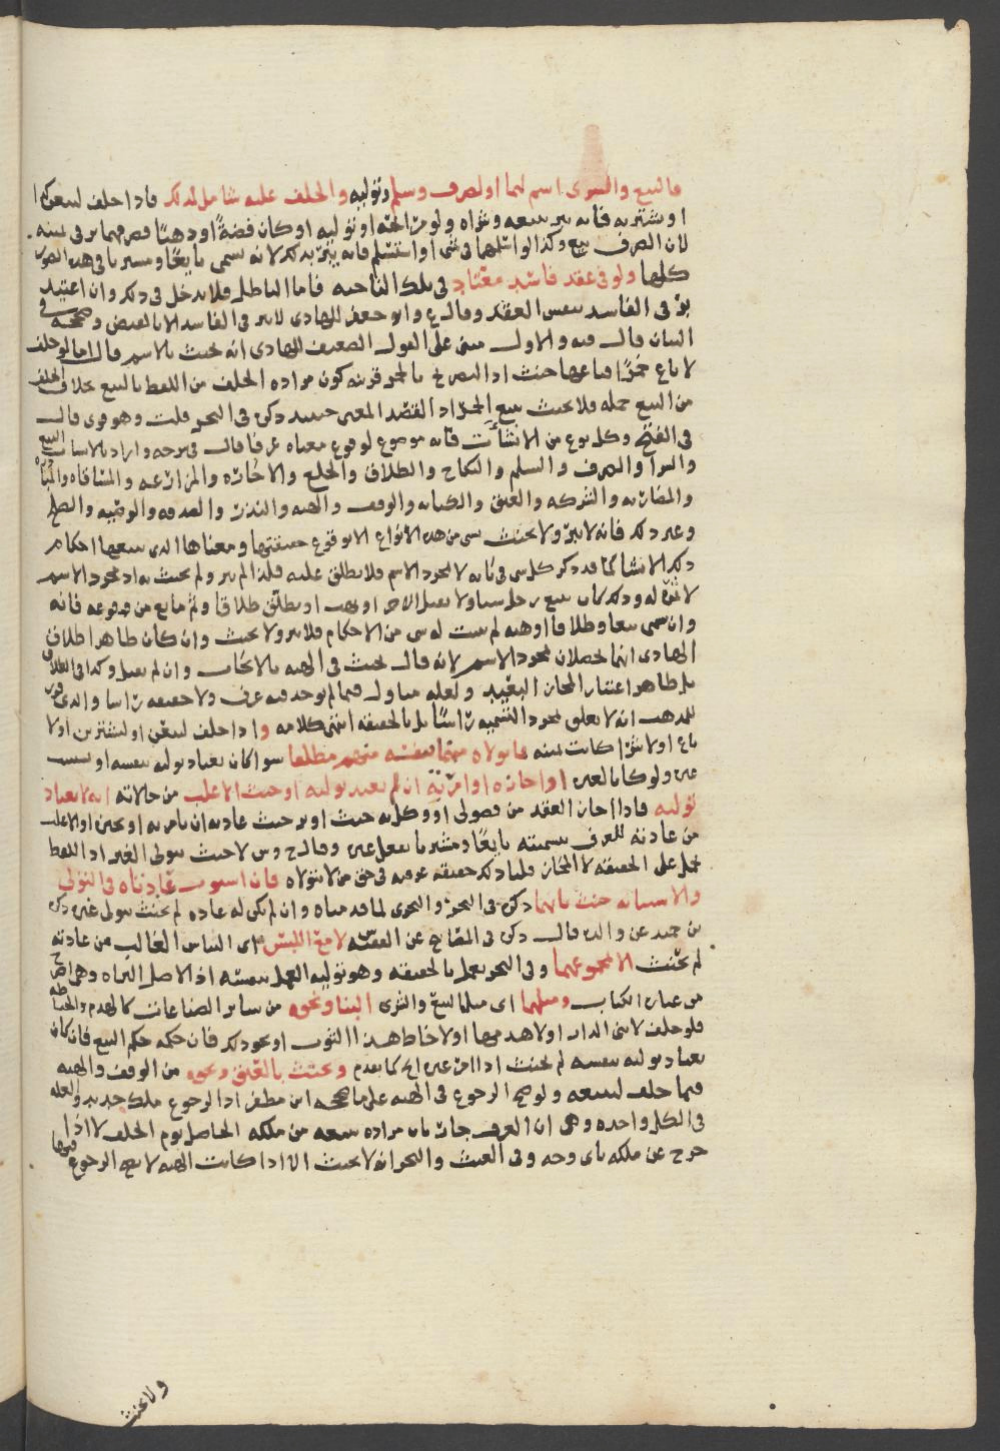 فالبيع والشرى اسم لهما او لصرف وسلم وتوليه والحلف عليه شامل لذلك فاذا حلف ليبيعن كذا
او يشتريه فانه يبر ببيعه وشراه ولو من الجنة او توليه او كان فضة او ذهبا فصرفهما بر في يمينه
لان الصرف بيع وكذا لو اسلمها في شي او استسلم فانه يبر بذلك لانه يسمى بايعا ومشتريا في هذه الصور
كلها ولو في عقد فاسد معتاد في تلك الناحيه فاما الباطل فلا يدخل في ذلك وان اعتيد
بر في الفاسد بنفس العقد وقال ع وابو جعفر للهادي لا يبر في الفاسد الا بالقبض وصححه في
البيان قال فيه والاول مبني على القول الضعيف للهادي انه يحنث بالاسم قال اما لو حلف
لا باع خمرا فباعها حنث اذ التصريح بالخمر قرينة كون مراده الحلف من اللفظ بالبيع بخلاف الحلف
من البيع جمله فلا يحنث ببيع الخمر اذ القصد المعين حينئذ ذكره في البحر قلت وهو قوي قال
في الفتح وكل نوع من الانشآت فانه موضوع لوقوع معناه عرفا قال في شرحه واراد بالانشات البيع
والشرا والصرف والسلم والنكاح والطلاق والخلع والاجارة والمزارعه والمساقاه والمباراه
والمضاربه والشركه والعتق والكتابه والوقف والهبه والنذر والصدقه والوصيه والصلح
وغير ذلك فانه لا يبر ولا يحنث بشي من هذه الانواع الا بوقوع حقيقتها ومعناها الذي يتبعها احكام
ذلك الانشا كما قد ذكر كل شي في بابه لا بمجرد الاسم فلا يطلق عليه فلذا لم يبر ولم يحنث به اذ مجرد الاسم
لا ثمرة له وذلك كان يبيع رجل شيا ولا يقبل الاخر او يهب او يطلق طلاقا وثم مانع من وقوعه فانه
وان سمي بيعا وطلاقا او هبه لم يثبت له شي من الاحكام فلا يبر ولا يحنث وان كان ظاهر اطلاق
الهادي انهما يحصلان بمجرد الاسم لانه قال يحنث في الهبه بالايجاب وان لم يقبل وكذا في الطلاق
بل ظاهر اعتبار المجاز البعيد ولعله متاول فيما لم يوجد فيه عرف ولا حقيقه راسا والذي قرر
للمذهب انه لا يعلق بمجرد التسميه راسا بل بالحقيقه انتهى كلامه واذا حلف ليبيعن او ليشترين او لا
باع او لا شرا كانت يمينه فيما تولاه منهما بنفسه منهم مطلقا سوا كان يعتاد توليه بنفسه او بسبب
غيره ولو كان بالعبر او اجازه او امر به ان لم يعتد توليه او حيث الاغلب من حالاته انه لا يعتاد
توليه فاذا اجاز العقد من فضولي او وكل به حنث او بر حيث عادته ان يامر به او يجيز او الاغلب
من عادته للعرف بتسميته بايعا ومشتريا بفعل غيره وقال ح وس لا حنث بتولي الغير اذ اللفظ
يحمل على الحقيقه لا المجاز قلنا ذلك حقيقه عرفيه في حق من لا يتولاه فان استوت عادتاه في التولي
والاستنابه حنث بايهما ذكره في البحر والتحري لما قدمناه وان لم يكن له عادة لم يحنث بتولي غيره ذكره
لم يحنث الا بمجموعهما وفي البحر يعمل بالحقيقه وهو توليه الفعل بنفسه اذ الاصل البراه وهي اصرح
من عباره الكتاب ومثلهما اي مثل البيع والشرى البنا ونحوه من ساير الصناعات كالهدم والخياطه
فلو حلف لابنى الدار او لا هدمها او لا خاط هذا الثوب او نحو ذلك فان حكمه حكم البيع فان كان
يعتاد توليه بنفسه لم يحنث اذا امر غيره الخ كما تقدم ويحنث بالعتق ونحوه من الوقف والهبه
فيما حلف ليبيعه ولو صح الرجوع في الهبه على ما صححه ابن مظفر اذ الرجوع ملك جديد والعله
في الكل واحده وهي ان العرف جار بان مراده ببيعه من ملكه الحاصل يوم الحلف لا اذا
خرج عن ملكه باي وجه وفي الغيث والبحر انه لا يحنث الا اذا كانت الهبه لا يصح الرجوع فيها
ولا يحنث